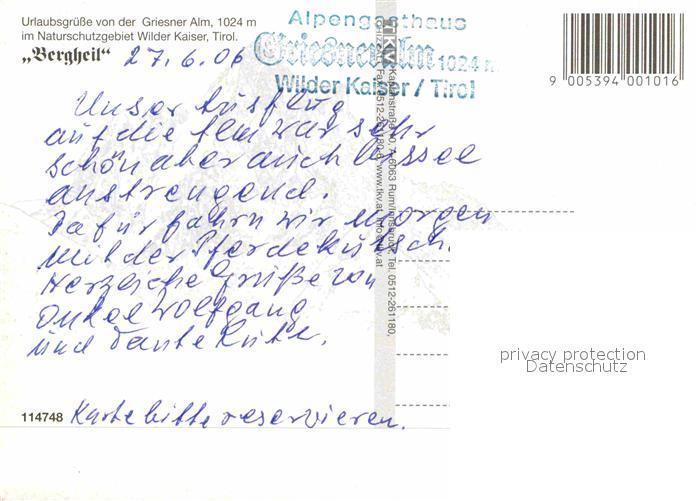 Urlaubsgrüße von der Griesner Alm, 1024 m
im Naturschutzgebiet Wilder Kaiser, Tirol.
„Bergheil“ 27.6.06
Alpengasthaus
Griesneralm 1024 m
Wilder Kaiser / Tirol
9 005394 001016
Unser Ausflug
auf die Alm war sehr
schön aber auch bissel
anstrengend.
Dafür fahrn wir morgen
mit der Pferdekutsch.
Herzliche Grüße von
Onkel Wolfgang
und Tante Rute.
TKV
A-6063 Rum/Innsbruck, Tel. 0512-261180,
Fax 0512-261180-8 www.tkv.at
privacy protection
Datenschutz
114748 Karte bitte reservieren.